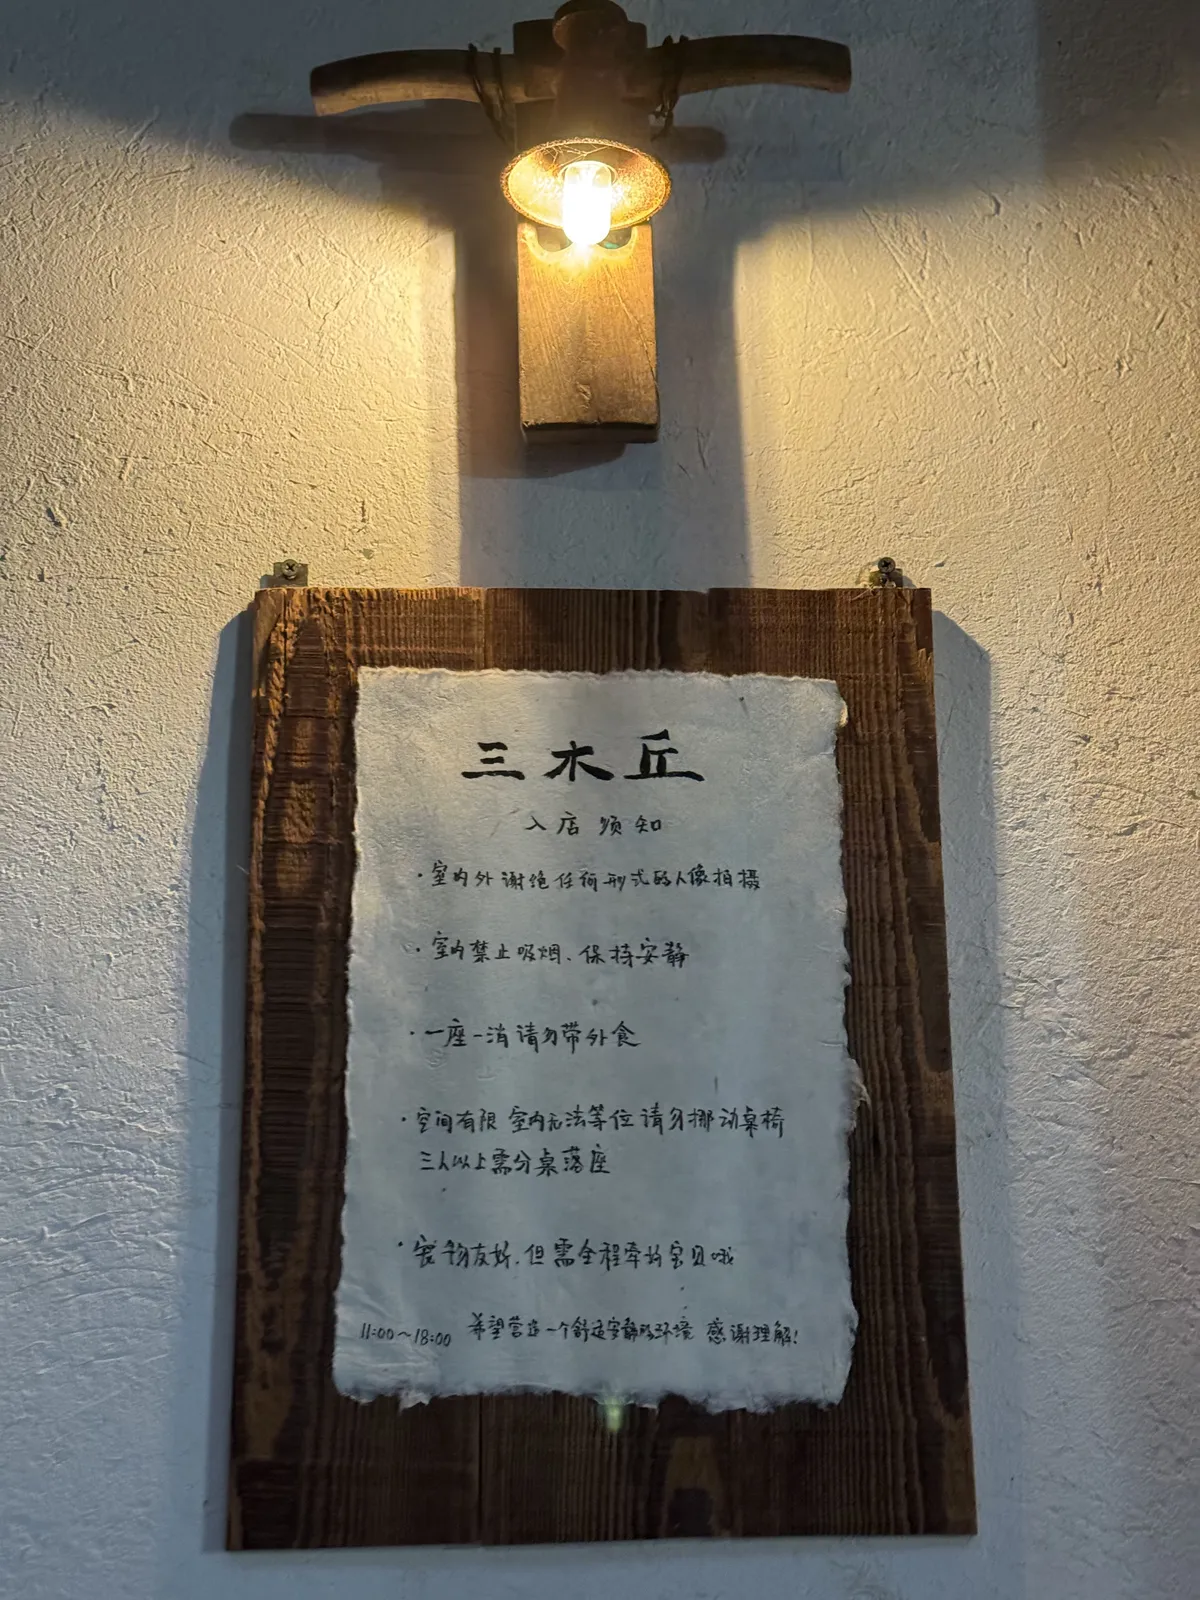 三木丘
入店须知
·室内外谢绝任何形式的人像拍摄
·室内禁止吸烟、保持安静
·一座一消请勿带外食
·空间有限 室内无法等位 请勿挪动桌椅
三人以上需分桌落座
·宠物友好，但需全程牵好宝贝哦
11:00～18:00 希望营造一个舒适安静的环境 感谢理解！